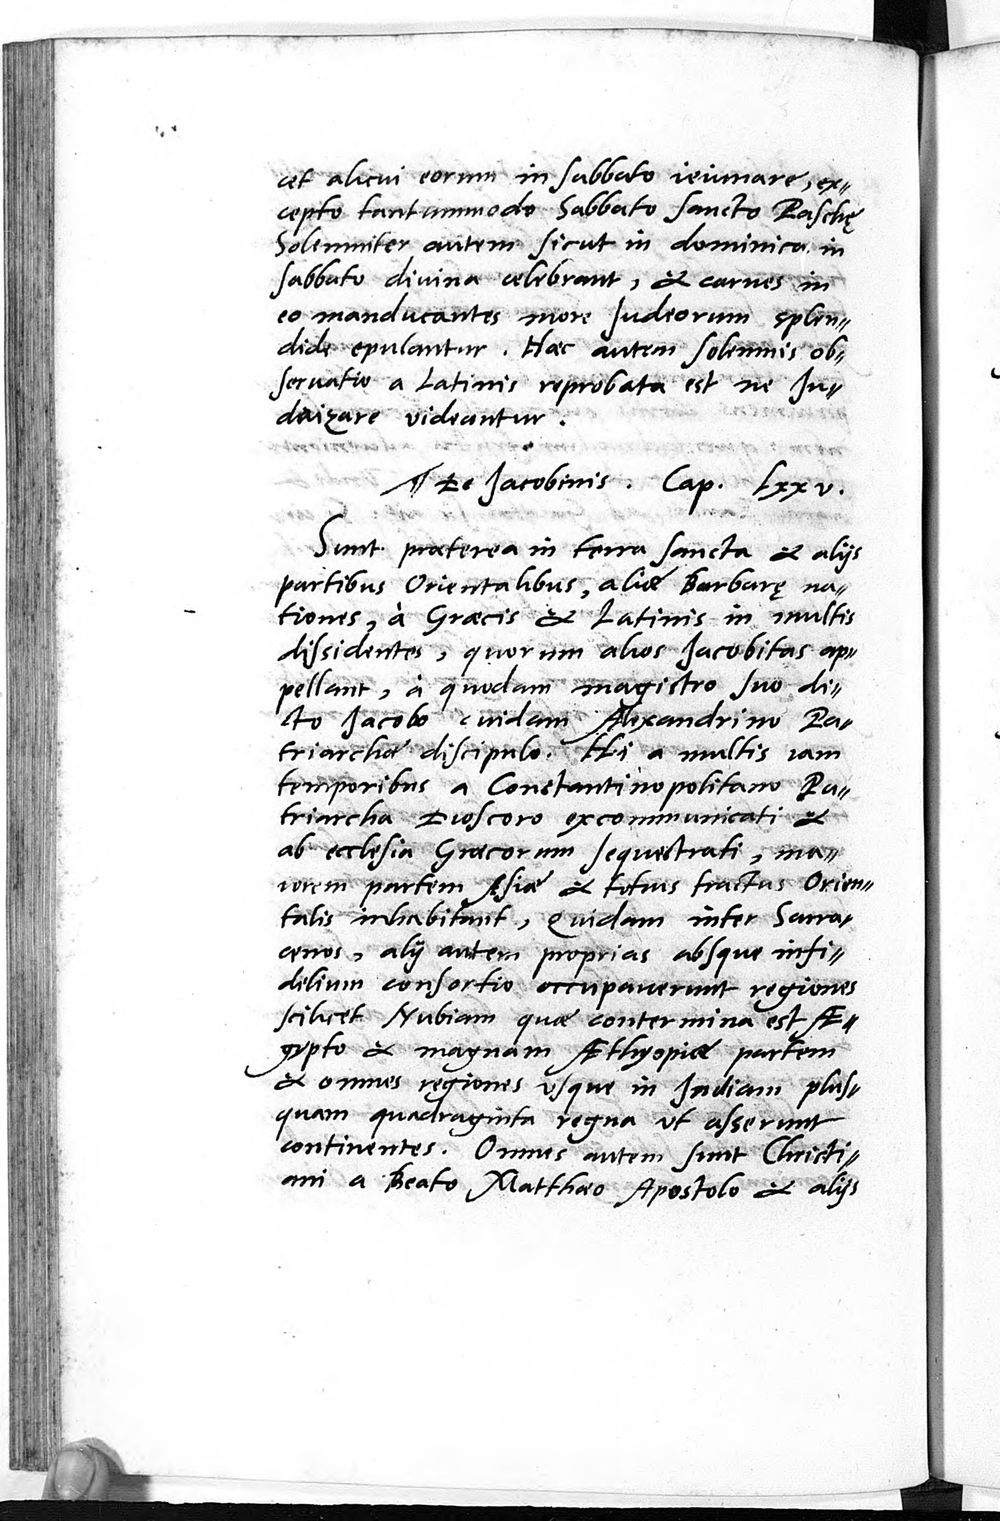 cet alicui eorum in sabbato ieiunare, ex=
cepto tantummodo Sabbato sancto Paschę
Solemniter autem sicut in dominica in
sabbato divina celebrant, & carnes in
eo manducantes more Judeorum splen=
dide epulantur. Hæc autem solemnis ob=
servatio a Latinis reprobata est ne Ju=
daizare videantur.
¶ De Jacobinis. Cap. Lxxv.
Sunt præterea in terra sancta & alijs
partibus Orientalibus, aliæ Barbarę na=
tiones, à Græcis & Latinis in multis
dissidentes, quorum alios Jacobitas ap=
pellant, à quodam magistro suo di=
cto Jacobo cuidam Alexandrino Pa=
triarchæ discipulo. Hi a multis iam
temporibus a Constantinopolitano Pa=
triarcha Dioscoro excommunicati &
ab ecclesia Græcorum sequestrati, ma=
iorem partem Asiæ & totius tractus Orien=
talis inhabitant, Quidam inter Sarra=
cenos, alij autem proprias absque infi=
delium consortio occupaverunt regiones
scilicet Nubiam quæ contermina est Æ=
gypto & magnam Æthyopiæ partem
& omnes regiones vsque in Indiam plus=
quam quadraginta regna vt asserunt
continentes. Omnes autem sunt Christi=
ani a Beato Matthæo Apostolo & alijs